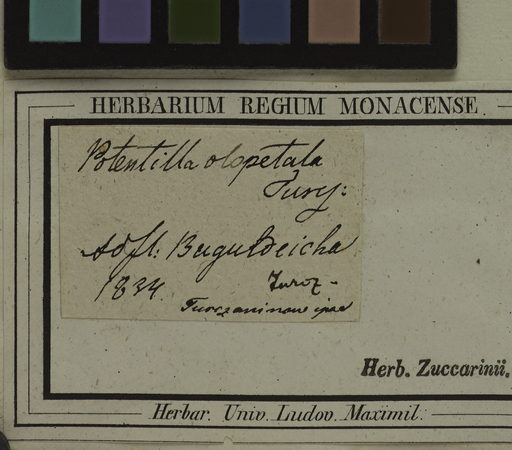 HERBARIUM REGIUM MONACENSE
Potentilla olopetala
Turcz:
Ad fl: Buguldeicha
1834.
Turcz -
Turczaninow ipse
Herb. Zuccarinii.
Herbar. Univ. Ludov. Maximil.